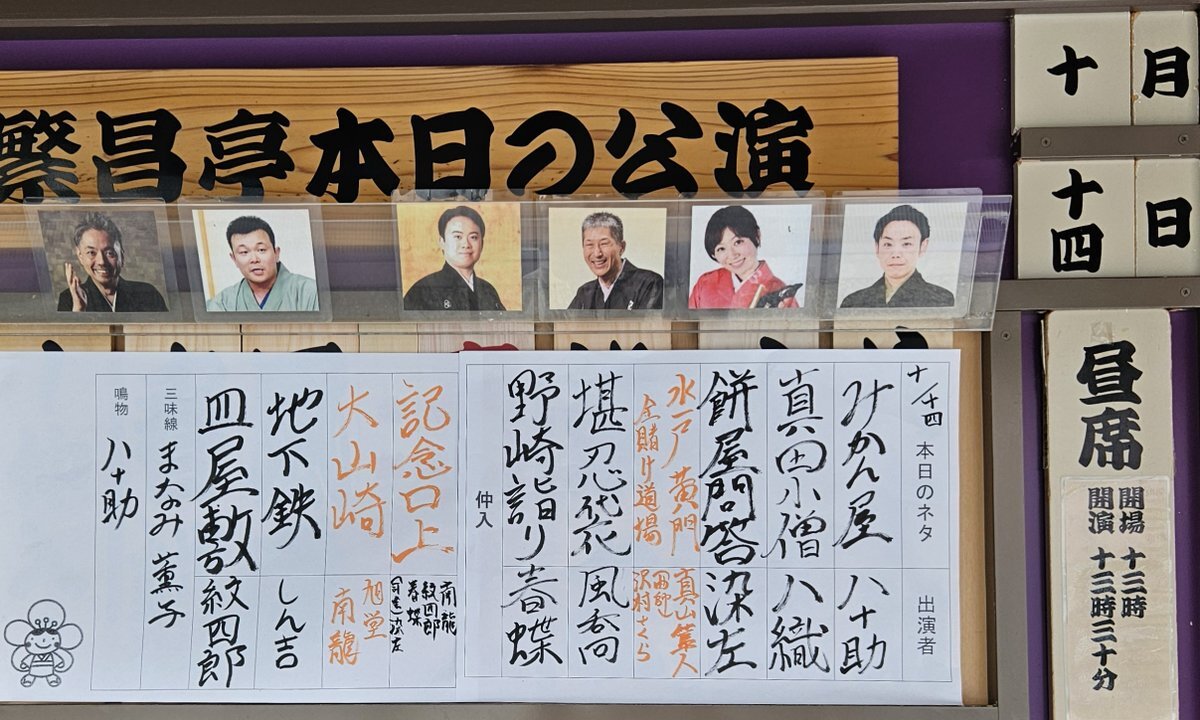 繁昌亭本日の公演
十月
十四日
昼席
開場 十三時
開演 十三時三十分
十/十四 本日のネタ 出演者
みかん屋 八十助
真田小僧 八織
餅屋問答 染左
水戸黄門 真山隼人
金賭け道場 曲師 沢村さくら
堪忍袋 風喬
野崎詣り 春蝶
仲入
記念口上 南龍
紋四郎
春蝶
司会 染左
大山崎 旭堂
南龍
地下鉄 しん吉
皿屋敷 紋四郎
三味線 まなみ 薫子
鳴物 八十助